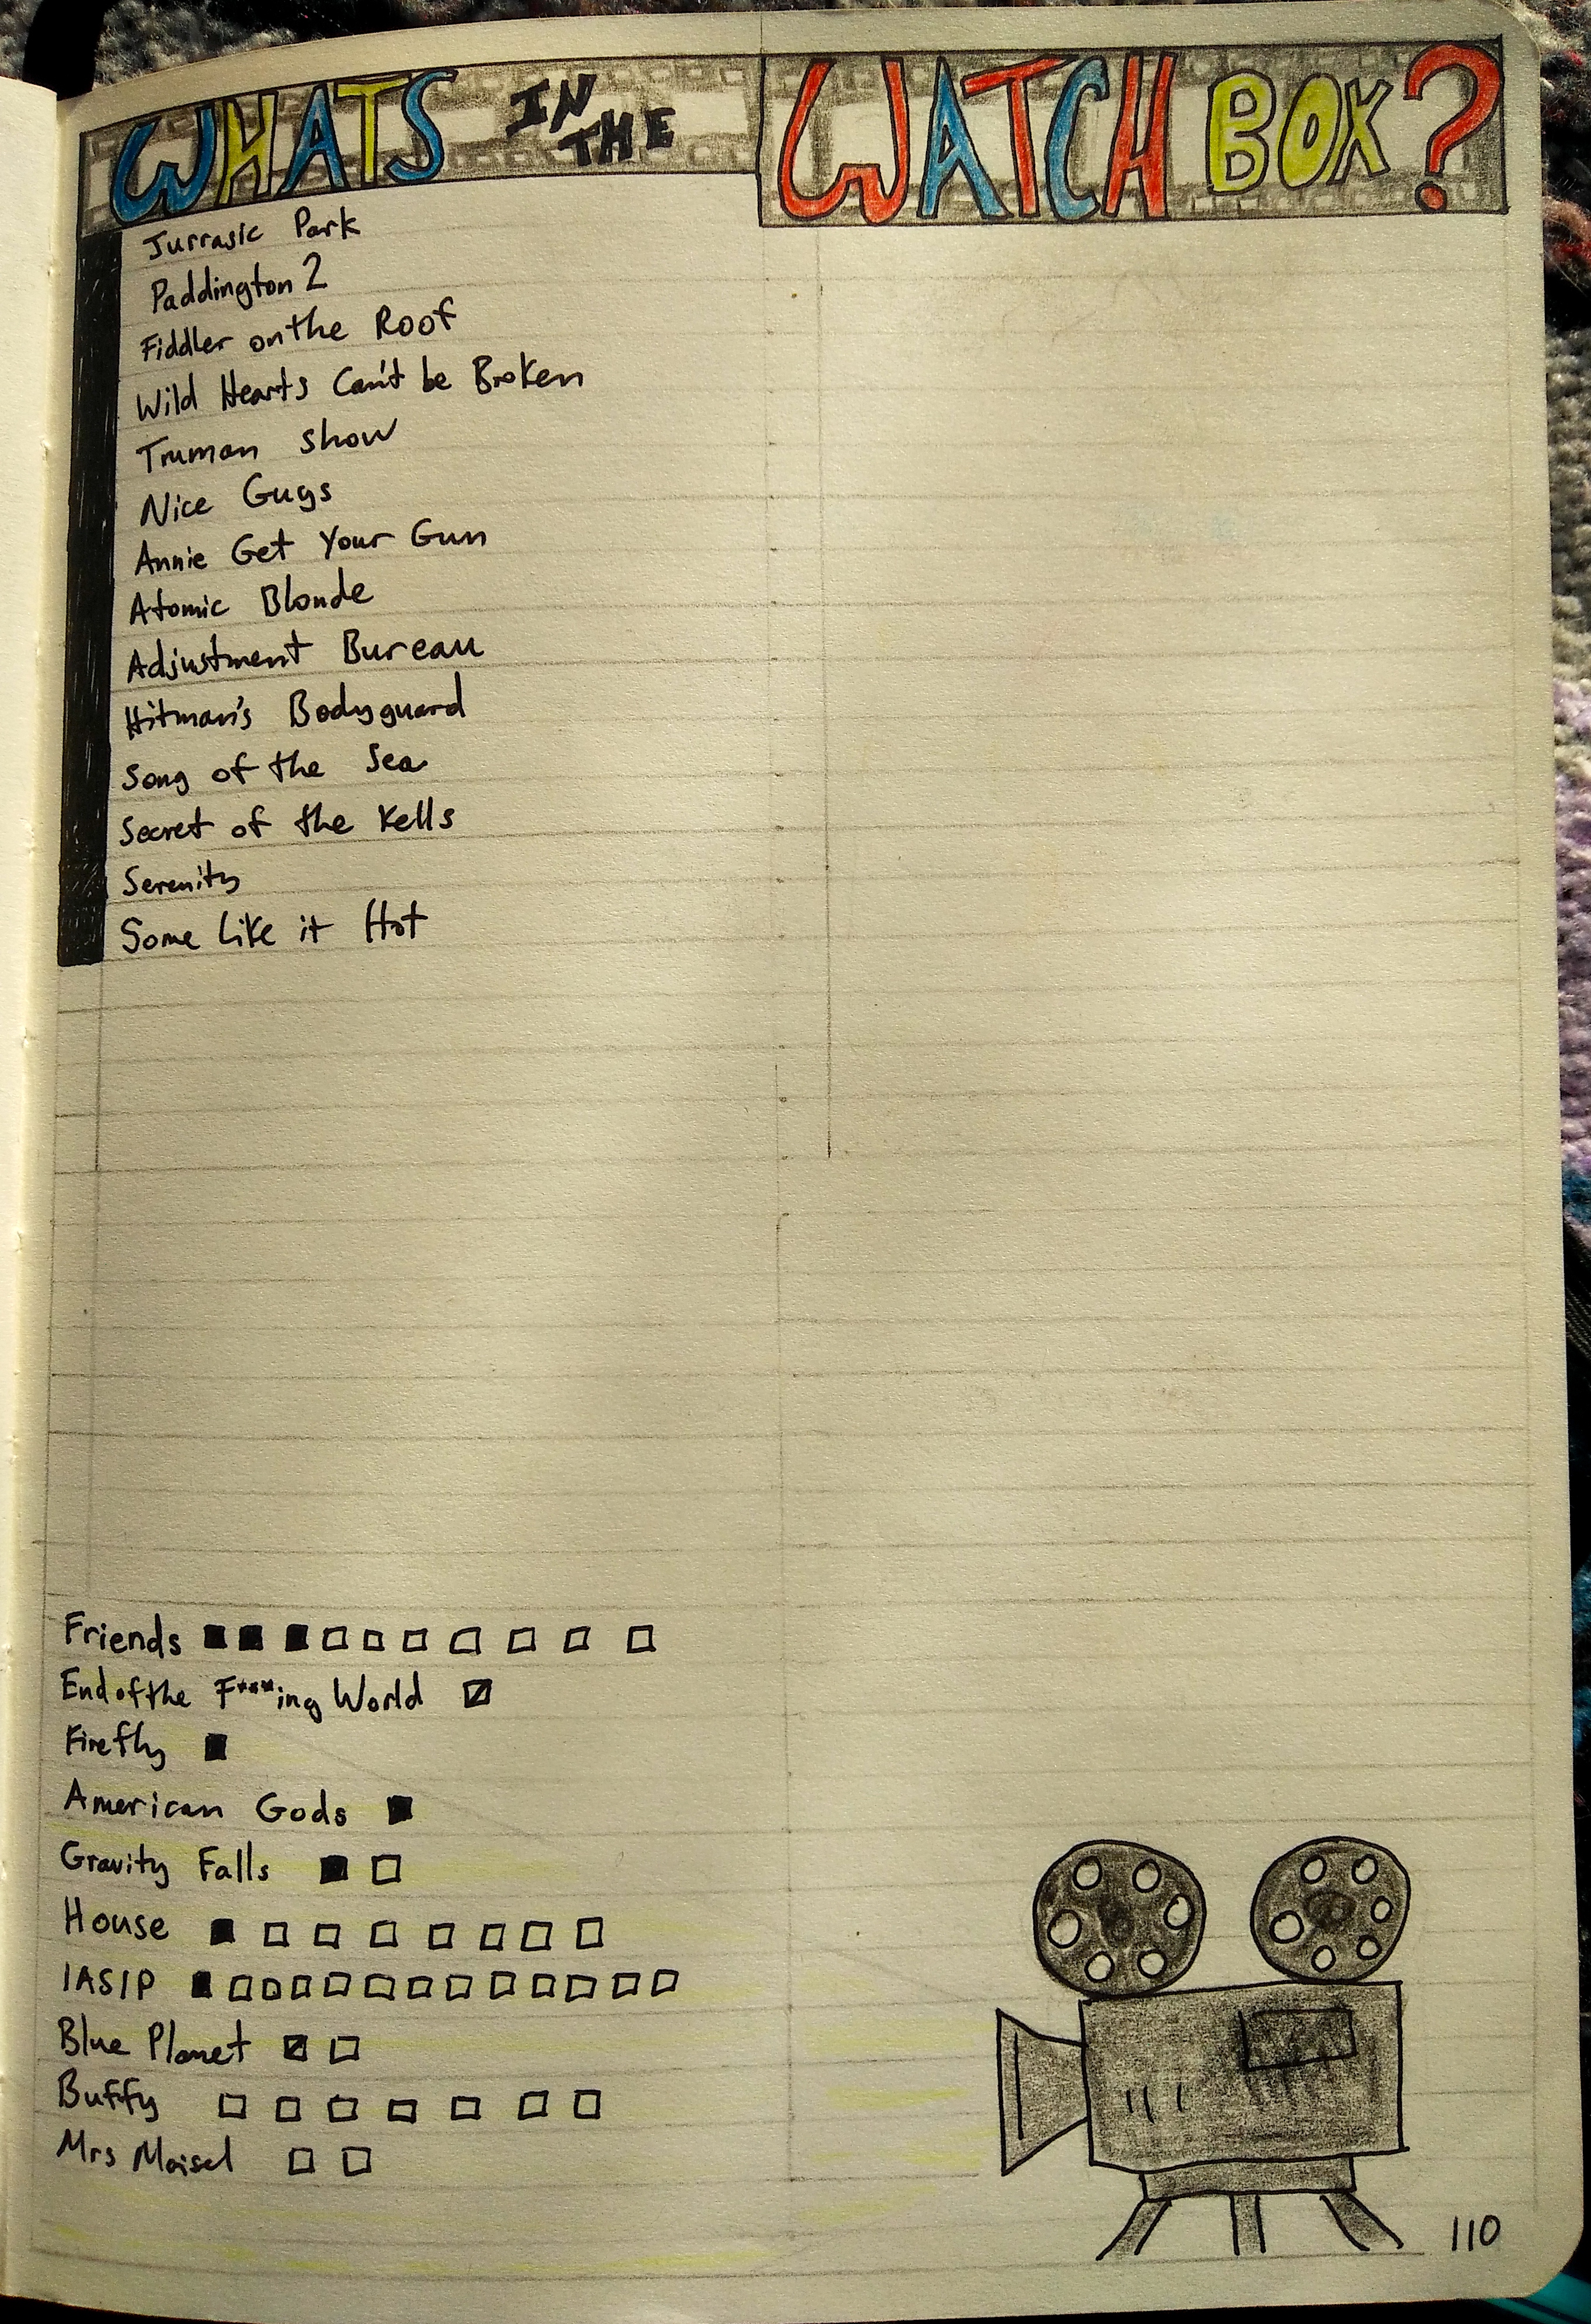 WHATS IN THE WATCH BOX?
Jurrasic Park
Paddington 2
Fiddler on the Roof
Wild Hearts Can't be Broken
Truman Show
Nice Guys
Annie Get Your Gun
Atomic Blonde
Adjustment Bureau
Hitman's Bodyguard
Song of the Sea
Secret of the Kells
Serenity
Some Like it Hot
Friends
End of the F***ing World
Firefly
American Gods
Gravity Falls
House
IASIP
Blue Planet
Buffy
Mrs Maisel
110